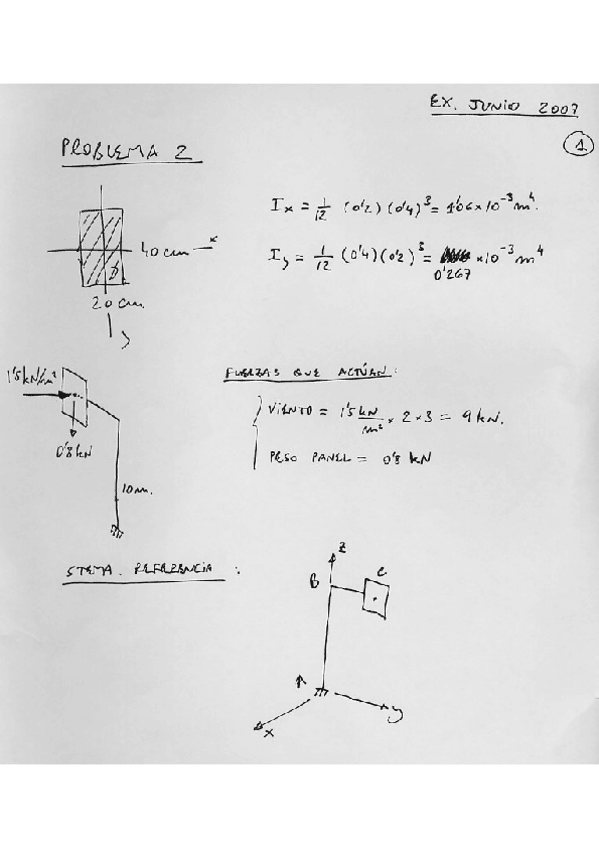 EX. JUNIO 2007
1
PROBLEMA 2
Ix = 1/12 (0'2) (0'4)³ = 1'06 × 10⁻³ m⁴.
40 cm
x
Iy = 1/12 (0'4) (0'2)³ = × 10⁻³ m⁴
0'267
20 cm.
y
1'5 kN/m²
FUERZAS QUE ACTÚAN:
VIENTO = 1'5 kN/m² × 2 × 3 = 9 kN.
0'8 kN
PESO PANEL = 0'8 kN
10 m.
STEMA REFERENCIA :
z
B
C
y
x